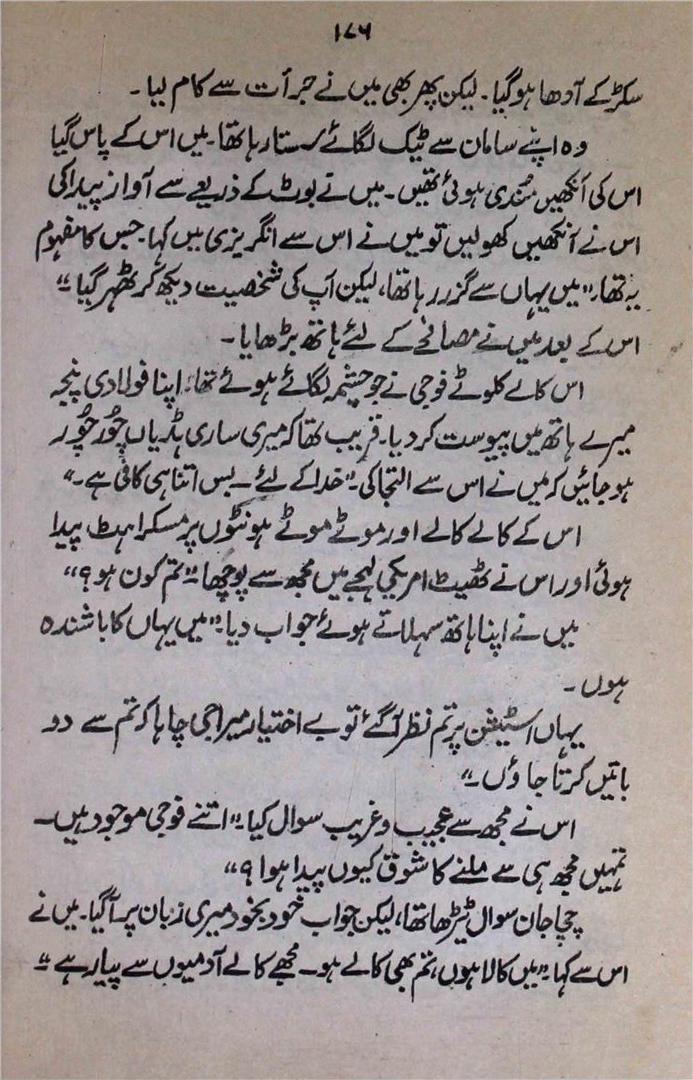 ۱۷۶
سکڑ کے آدھا ہو گیا۔ لیکن پھر بھی میں نے جرأت سے کام لیا۔
وہ اپنے سامان سے ٹیک لگائے سستا رہا تھا۔ میں اس کے پاس گیا
اس کی آنکھیں مُندی ہوئی تھیں۔ میں نے بوٹ کے ذریعے سے آواز پیدا کی
اس نے آنکھیں کھولیں تو میں نے اس سے انگریزی میں کہا۔ جس کا مفہوم
یہ تھا۔ "میں یہاں سے گزر رہا تھا، لیکن آپ کی شخصیت دیکھ کر ٹھہر گیا"۔
اس کے بعد میں نے مصافحے کے لئے ہاتھ بڑھایا۔
اس کالے کلوٹے فوجی نے جو چشمہ لگائے ہوئے تھا، اپنا فولادی پنجہ
میرے ہاتھ میں پیوست کر دیا۔ قریب تھا کہ میری ساری ہڈیاں چُور چُور
ہو جائیں کہ میں نے اس سے التجا کی۔ "خدا کے لئے۔ بس اتنا ہی کافی ہے۔"
اس کے کالے کالے اور موٹے موٹے ہونٹوں پر مسکراہٹ پیدا
ہوئی اور اس نے ٹھیٹ امریکی لہجے میں مجھ سے پوچھا۔ "تم کون ہو؟"
میں نے اپنا ہاتھ سہلاتے ہوئے جواب دیا۔ "میں یہاں کا باشندہ
ہوں۔
یہاں اسٹیشن پر تم نظر آ گئے تو بے اختیار میرا جی چاہا کہ تم سے دو
باتیں کرتا جاؤں۔"
اس نے مجھ سے عجیب و غریب سوال کیا۔ "اتنے فوجی موجود ہیں۔
تمہیں مجھ ہی سے ملنے کا شوق کیوں پیدا ہوا؟"
چچا جان سوال ٹیڑھا تھا، لیکن جواب خود بخود میری زبان پر آ گیا۔ میں نے
اس سے کہا۔ "میں کالا ہوں، تم بھی کالے ہو۔ مجھے کالے آدمیوں سے پیار ہے"۔